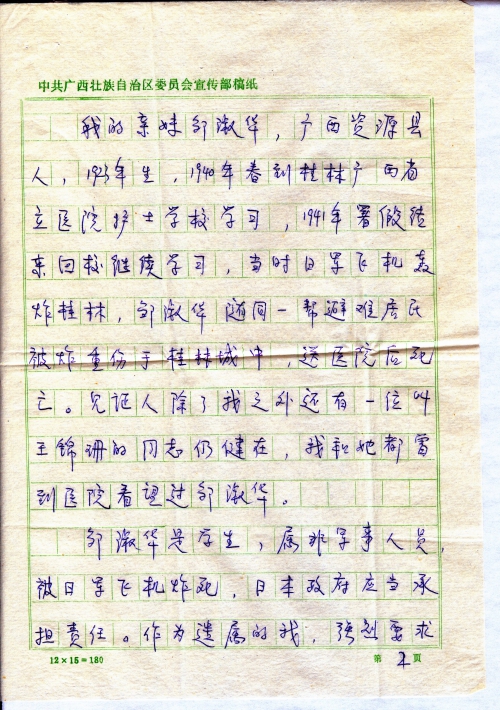 中共广西壮族自治区委员会宣传部稿纸
我的亲妹邹淑华，广西资源县
人，1923年生，1940年春到桂林广西省
立医院护士学校学习，1941年署假结
束回校继续学习，当时日军飞机轰
炸桂林，邹淑华随同一帮避难居民
被炸重伤于桂林城中，送医院后死
亡。见证人除了我之外还有一位叫
王锦珊的同志仍健在，我和她都曾
到医院看望过邹淑华。
邹淑华是学生，属非军事人员，
被日军飞机炸死，日本政府应当承
担责任。作为遗属的我，强烈要求
12×15=180
第 2 页